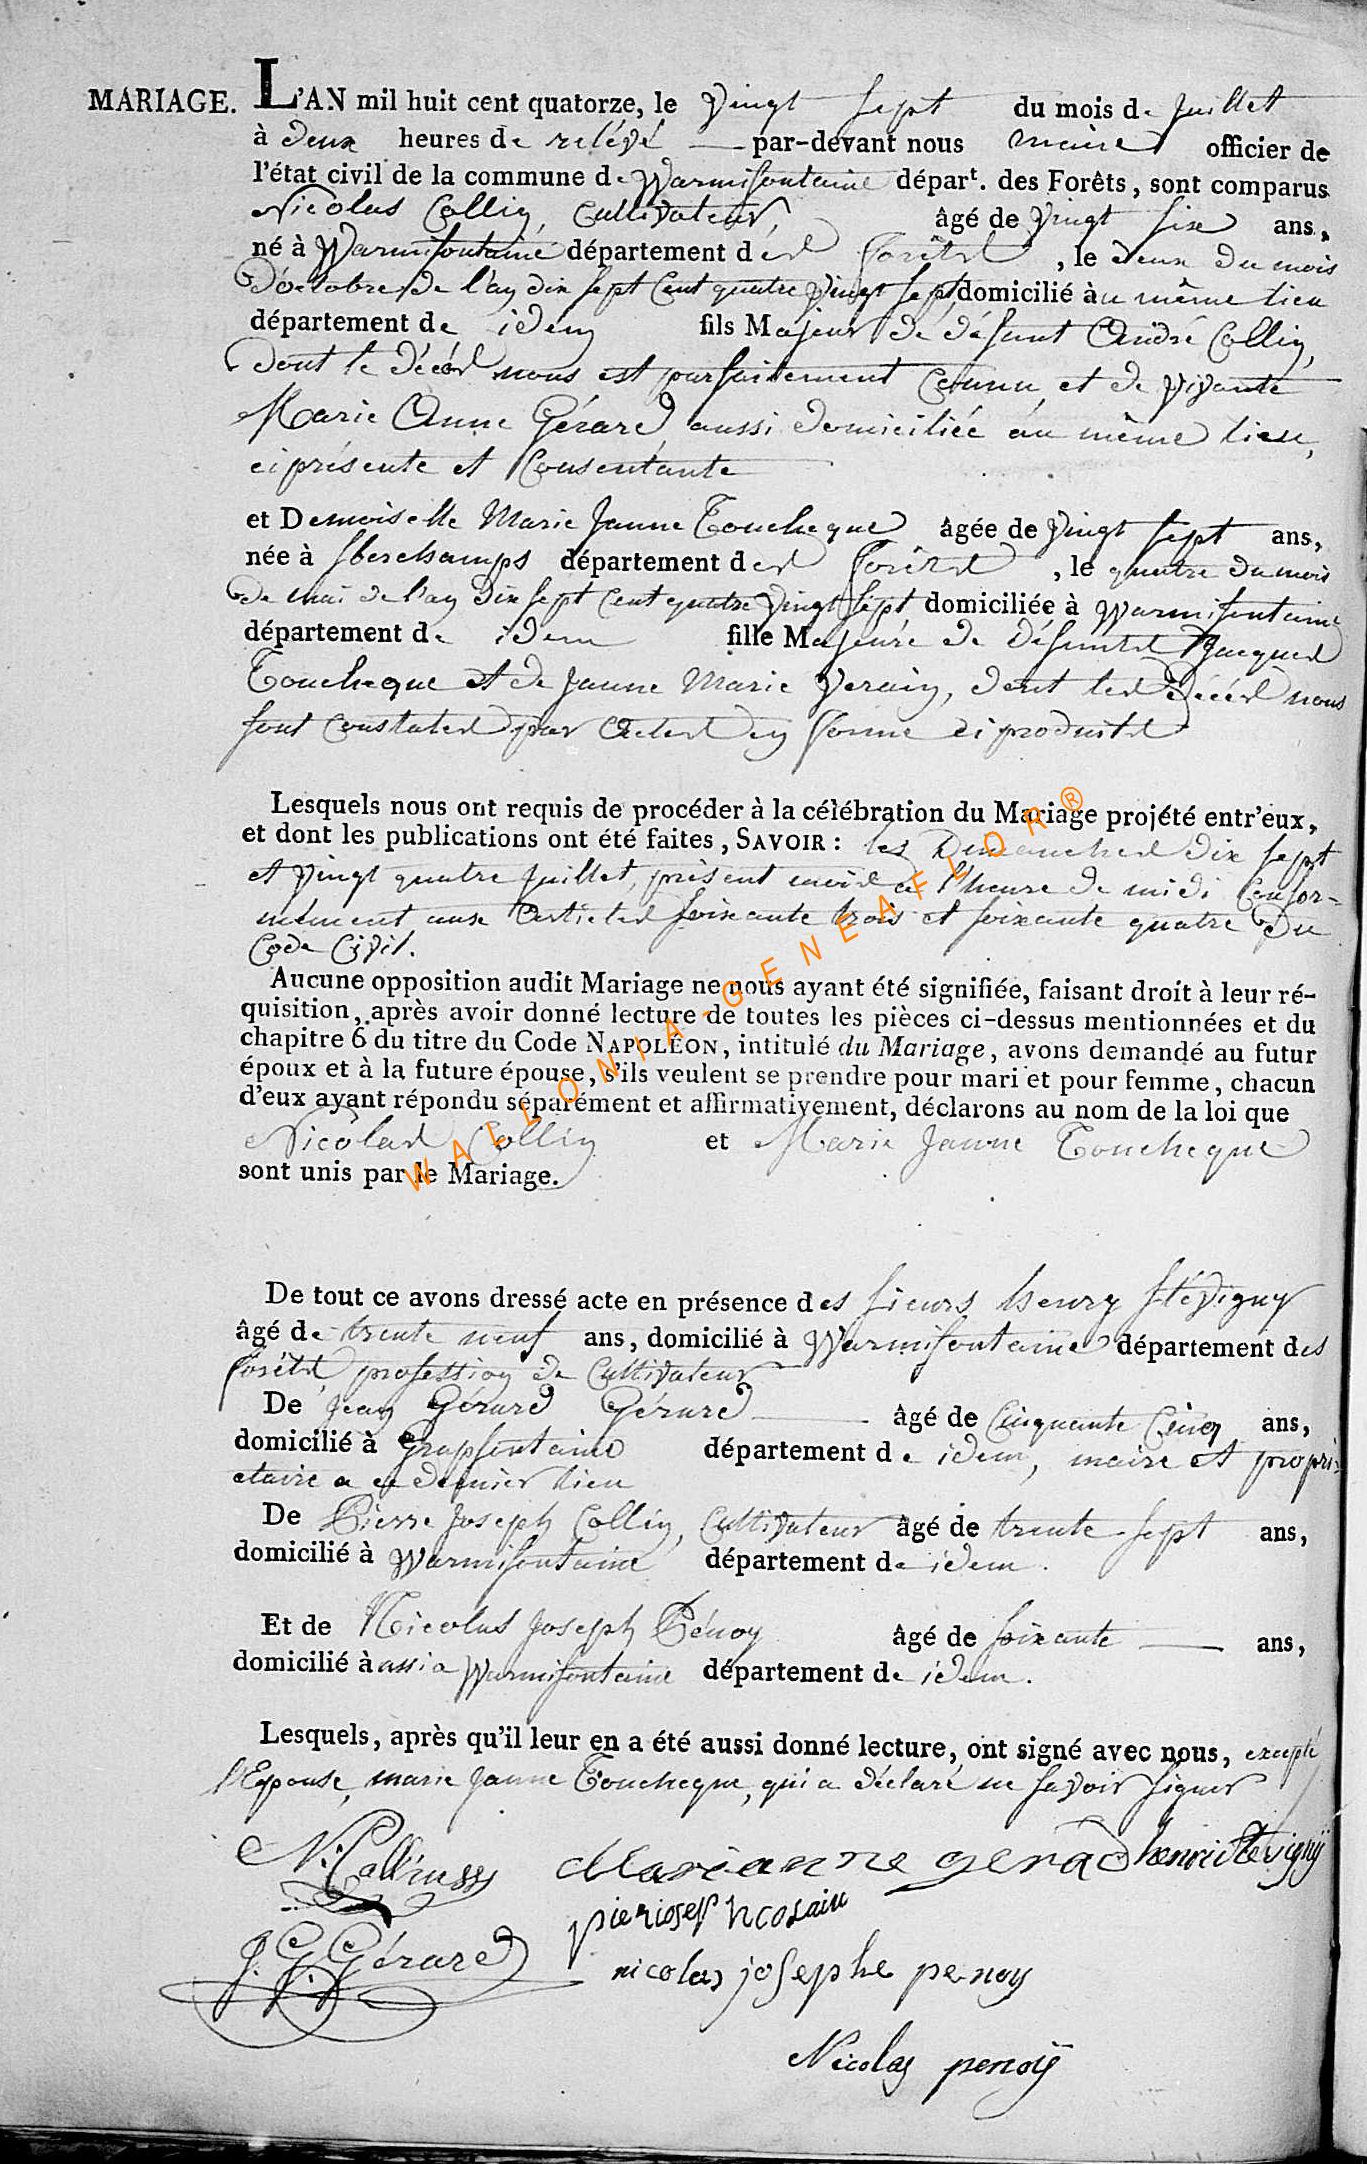 MARIAGE. L'AN mil huit cent quatorze, le Vingt Sept du mois de Juillet
à deux heures de relévé par-devant nous maire officier de
l'état civil de la commune de Warmifontaine départ. des Forêts, sont comparus
Nicolas Collin, Cultivateur, âgé de Vingt six ans,
né à Warmifontaine département des forêts, le deux du mois
d'octobre de l'an dix sept Cent quatre vingt sept domicilié au même lieu
département de idem fils Majeur de défunt André Collin,
dont le décès nous est parfaitement Connu, et de vivante
Marie Anne Gérard, aussi domiciliée au même lieu,
ci présente et Consentante
et Demoiselle Marie Janne Toucheque âgée de Vingt sept ans,
née à département des forêts, le quatre du mois
de mai de l'an dix sept cent quatre vingt sept domiciliée à Warmifontaine
département de idem fille Majeure de défunts Jacques
Toucheque et de Janne Marie Verain, dont les décès nous
sont constatés par Actes en forme ci produits
Lesquels nous ont requis de procéder à la célébration du Mariage projété entr'eux,
et dont les publications ont été faites, SAVOIR : les Dimanches dix sept
et vingt quatre Juillet, présent mois a l'heure de midi Confor-
mément aux Articles soixante trois et soixante quatre du
Code Civil.
Aucune opposition audit Mariage ne nous ayant été signifiée, faisant droit à leur ré-
quisition, après avoir donné lecture de toutes les pièces ci-dessus mentionnées et du
chapitre 6 du titre du Code NAPOLÉON, intitulé du Mariage, avons demandé au futur
époux et à la future épouse, s'ils veulent se prendre pour mari et pour femme, chacun
d'eux ayant répondu séparément et affirmativement, déclarons au nom de la loi que
Nicolas Collin et Marie Janne Toucheque
sont unis par le Mariage.
WALLONIA-GENEAFLOR®
De tout ce avons dressé acte en présence des sieurs henry Stévigny
âgé de trente neuf ans, domicilié à Warmifontaine département des
forêts profession de Cultivateur
De Jean Gérard Gérard âgé de Cinquante Cinq ans,
domicilié à Grapfontaine département de idem, maire et propri-
etaire a ce dernier lieu
De Pierre Joseph Collin, Cultivateur âgé de trente sept ans,
domicilié à Warmifontaine département de idem.
Et de Nicolas Joseph Pénoy âgé de soixante ans,
domicilié à Warmifontaine département de idem.
Lesquels, après qu'il leur en a été aussi donné lecture, ont signé avec nous, excepté
l'Epouse, marie Janne Toucheque, qui a déclaré ne savoir signer
N. Marianne gerard henri Stevignÿ
J. G. Gérard
nicolas josephe penoy
Nicolas penoÿ